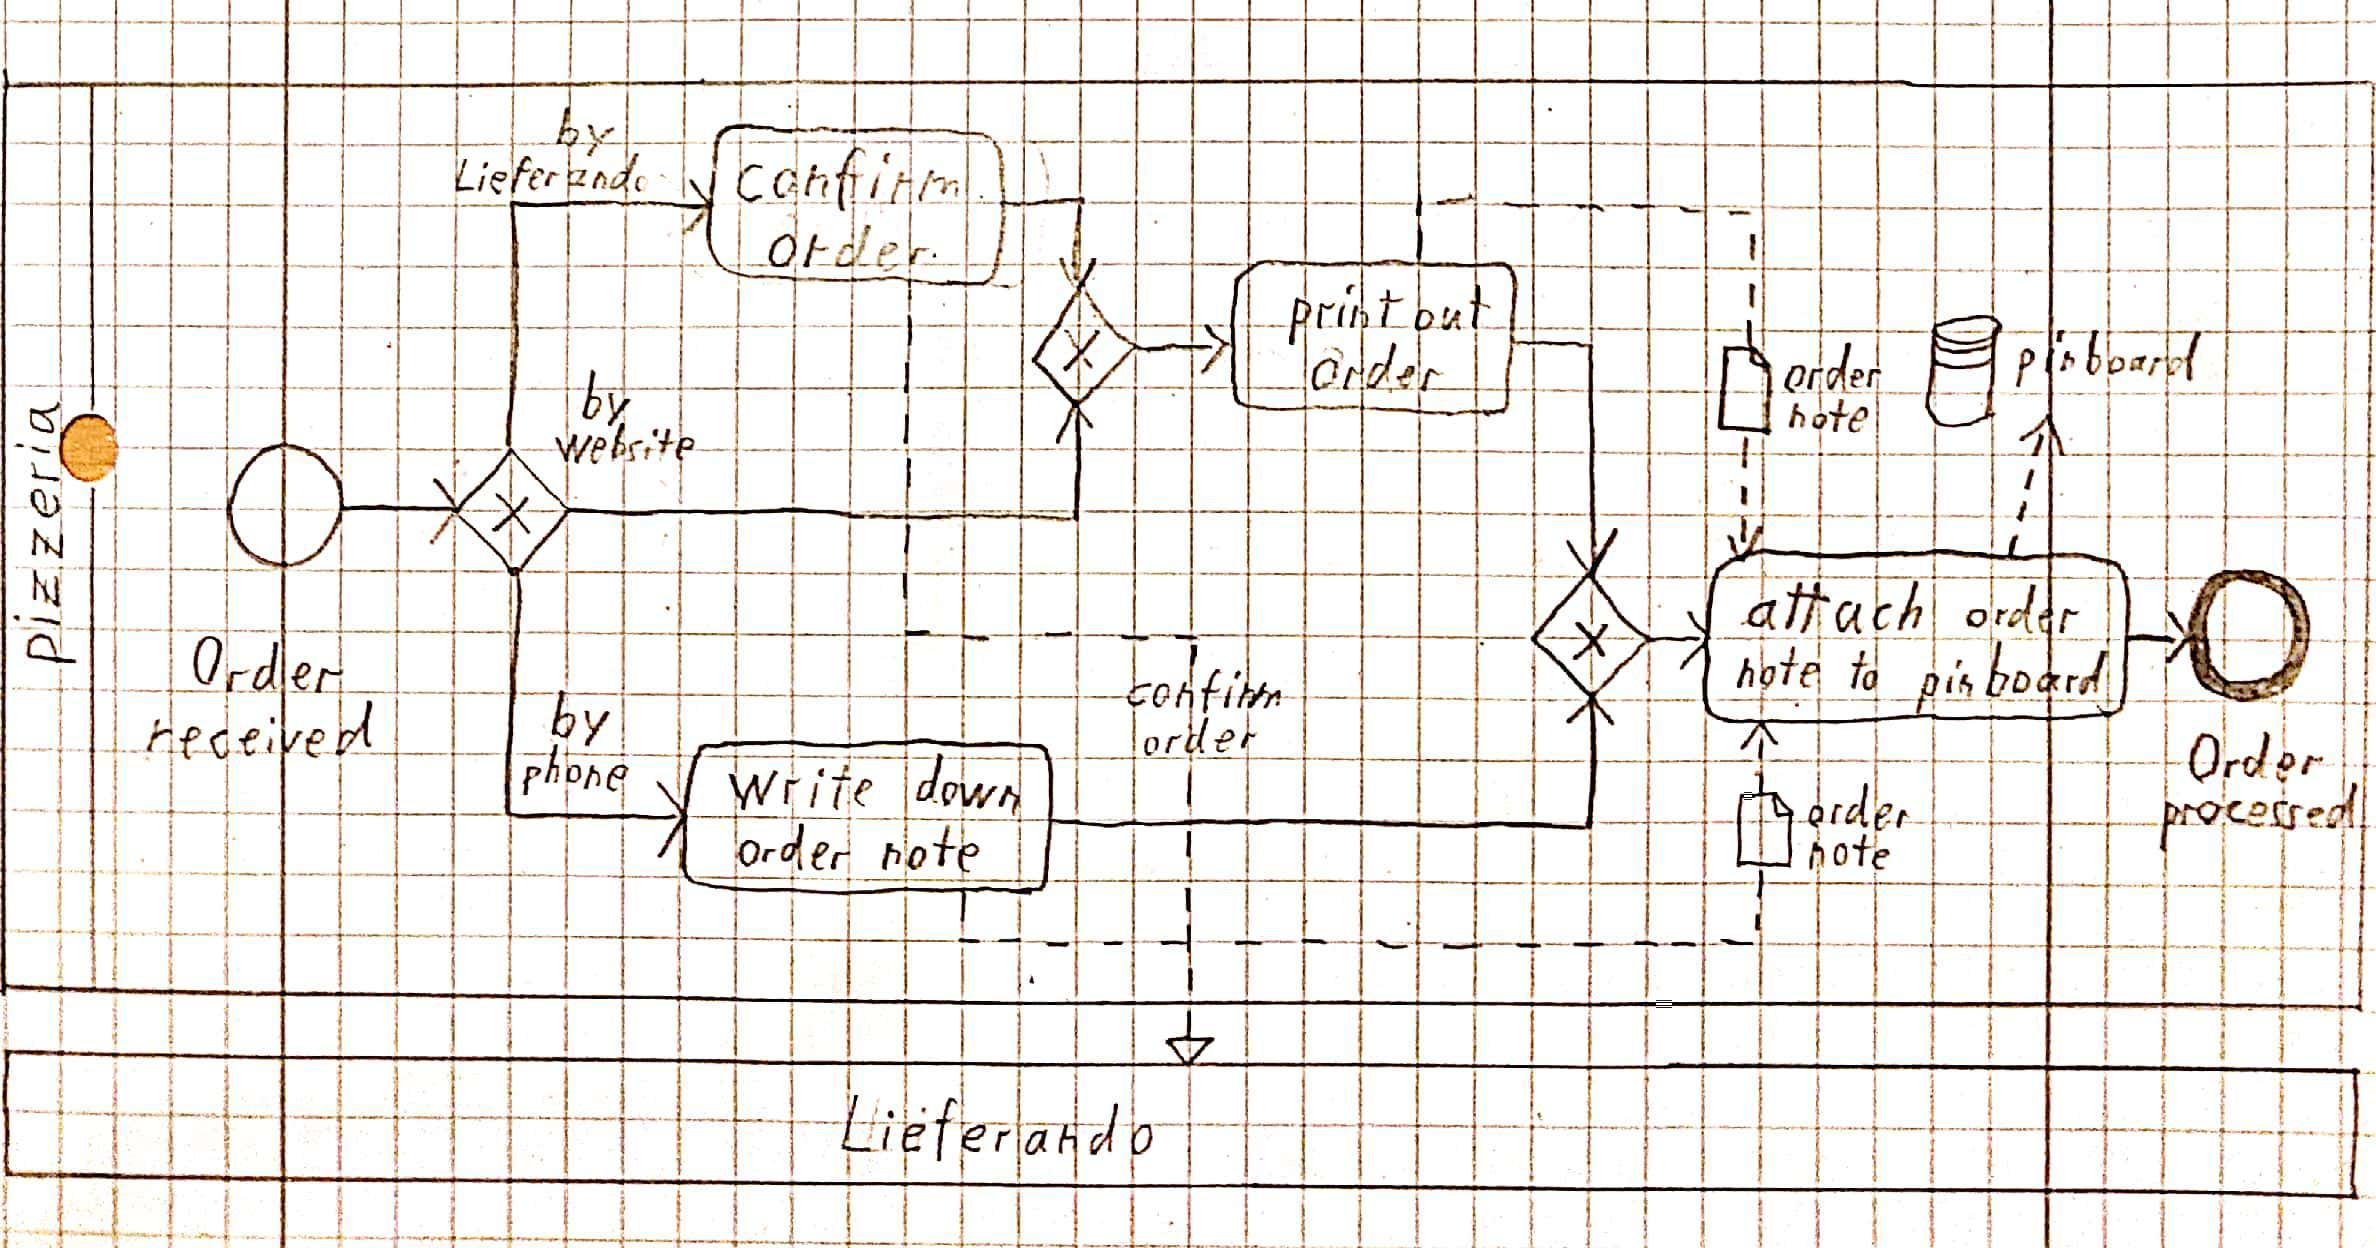 Pizzeria
Order
received
by
Lieferando
by
website
by
phone
confirm
order
print out
order
write down
order note
confirm
order
order
note
pinboard
attach order
note to pinboard
order
note
Order
processed
Lieferando